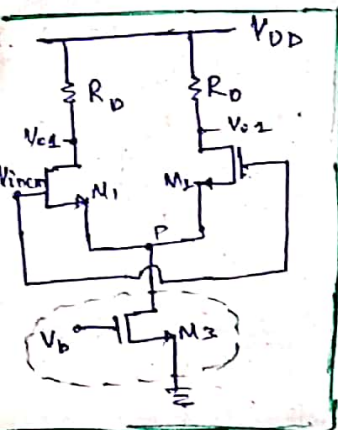 VDD
RD RD
Vo1 Vo2
Vincm M1 M2
P
Vb M3